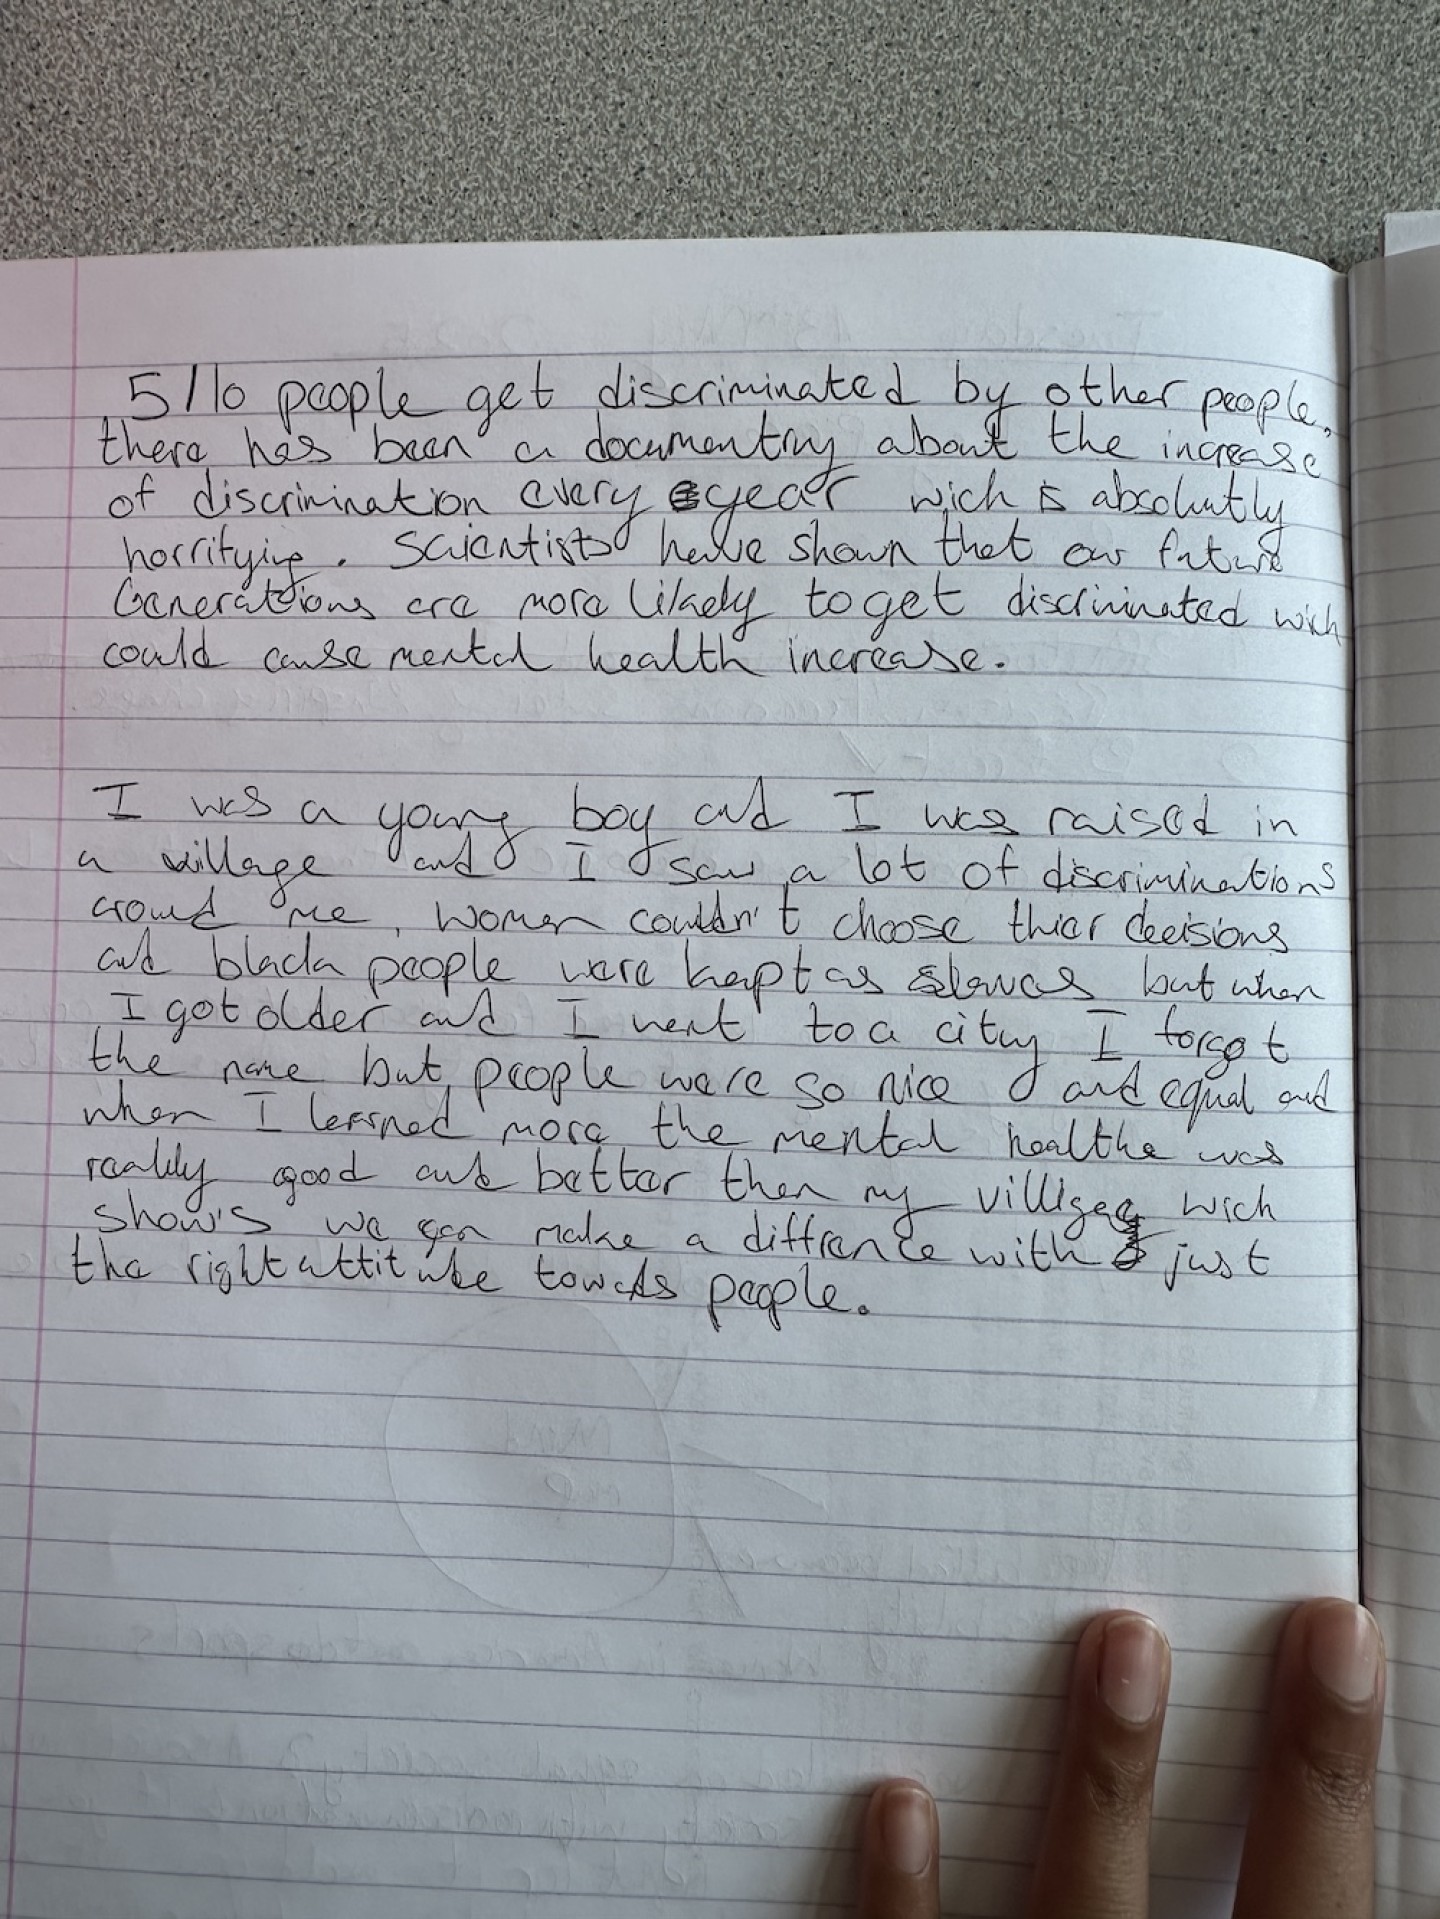 5/10 people get discriminated by other people,
there has been a documentry about the increase
of discrimination every year wich is absolutly
horrifying. Scientists have shown that our future
Generations are more likely to get discriminated wich
could cause mental health increase.
I was a young boy and I was raised in
a village and I saw a lot of discriminations
around me, women couldn't choose thier decisions
and black people were kept as slaves but when
I got older and I went to a city I forgot
the name but people were so nice and equal and
when I learned more the mental healthe was
really good and better then my villige wich
show's we can make a diffrence with just
the right attitube towards people.